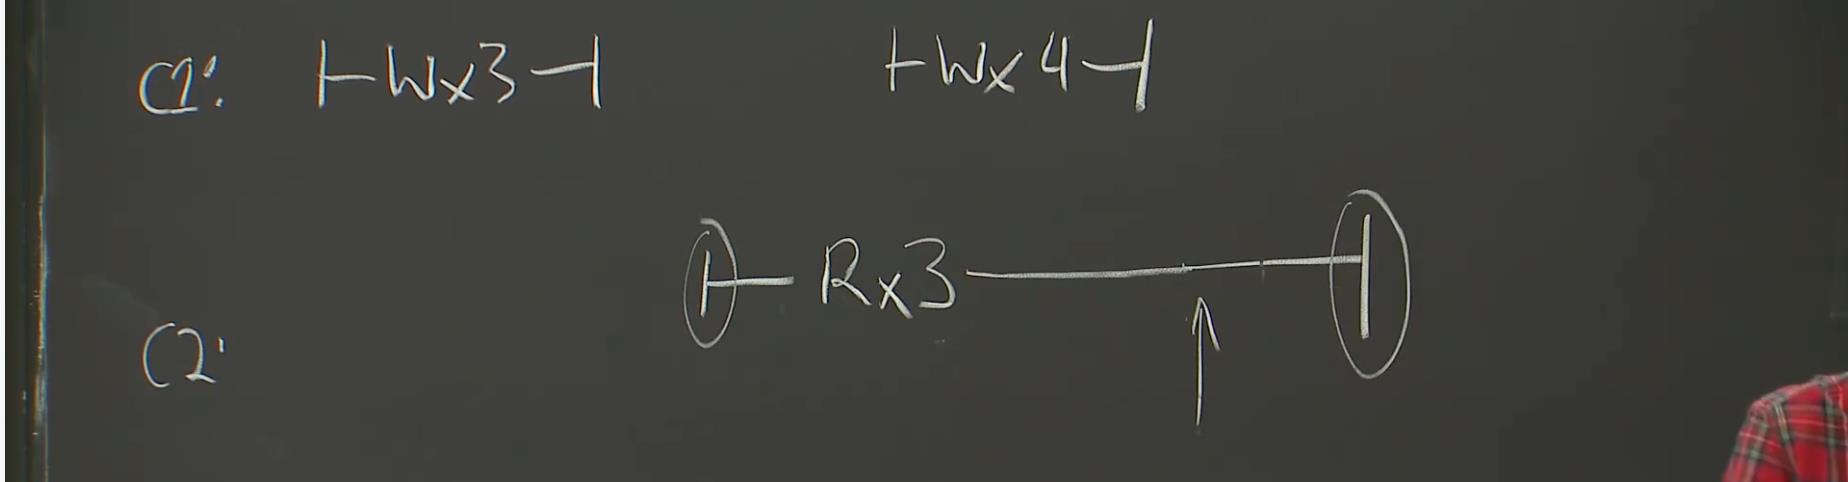 C1: Wx3 Wx4
Rx3
C2: